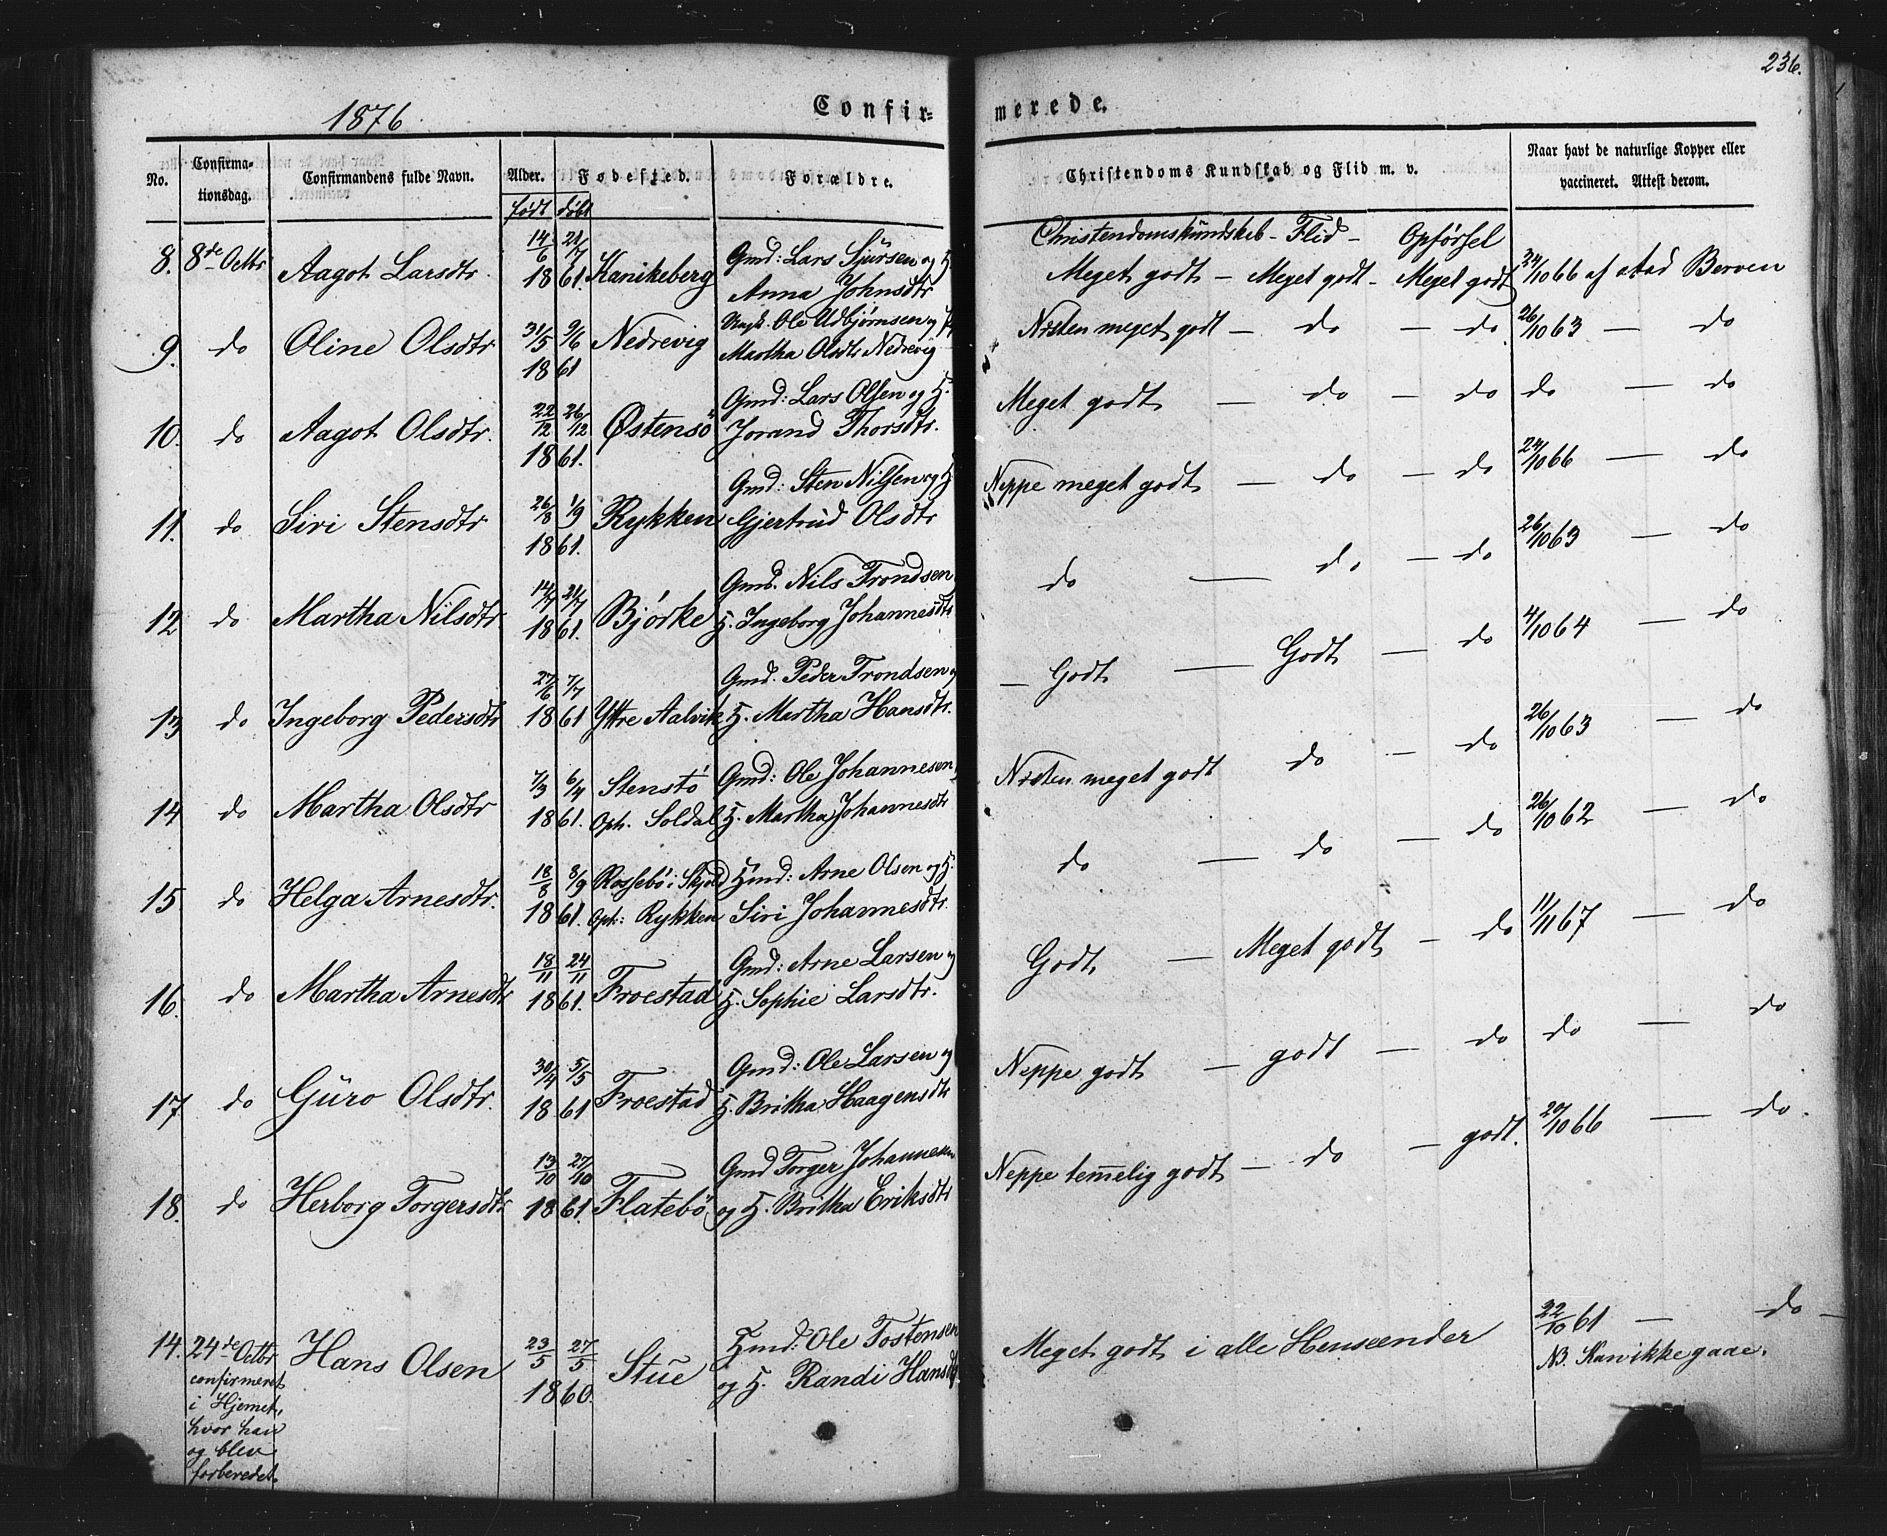 236.
1876.
Confir-
merede.
No.
Confirma-
tionsdag.
Confirmandens fulde Navn.
Alder.
Fødested.
Forældre.
Christendoms Kundskab og Flid m. v.
Naar havt de naturlige Kopper eller
vaccineret. Attest derom.
født døbt
Christendomskundskab - Flid - Opførsel
8. 8de Octbr Aagot Larsdtr. 14/6 21/7 Kanikeberg Gmd: Lars Sjursen og H. Meget godt - Meget godt - Meget godt 24/10 66 af Berven
18 61. Anna Johnsdtr
9. do Oline Olsdtr 31/5 9/6 Nedrevig Ole Udbjørnsen og Næsten meget godt - do - do 26/10 63 - do
18 61 Martha Olsdtr Nedrevig
10. do Aagot Olsdtr. 22/12 26/12 Østensö Gmd: Lars Olsen og H. Meget godt - do - do do - do
18 61. Jorand Thorsdtr.
11. do Siri Stensdtr 26/8 1/9 Rykken Gmd: Sten Nilsen og H. Neppe meget godt - do - do 24/10 66 - do
18 61. Gjertrud Olsdtr
12 do Martha Nilsdtr. 14/7 21/7 Bjørke Gmd. Nils Trondsen do - do - do 26/10 63 - do
18 61. H. Ingeborg Johannesdtr
13 do Ingeborg Pedersdtr 27/6 7/7 Yttre Aalvik Gmd. Peder Trondsen og - Godt - Godt - do 4/10 64 - do
18 61 H. Martha Hansdtr.
14 do Martha Olsdtr 7/3 6/4 Stenstø Gmd: Ole Johannesen Næsten meget godt do - do 26/10 63 - do
18 61. Oph. Soldal H. Martha Johannesdtr
15 do Helga Arnesdtr. 18/8 8/9 Rossebö i Skjold Hmd: Arne Olsen og H. do - do - do 26/10 62 - do
18 61. Oph: Rykken Siri Johannesdtr.
16. do Martha Arnesdtr 18/11 24/11 Froestad Gmd: Arne Larsen og Godt - Meget godt - do 11/11 67 - do
18 61. H. Sophie Larsdtr.
17 do Guro Olsdtr. 30/4 5/5 Froestad Gmd: Ole Larsen og Neppe godt - godt - do do - do
18 61 H. Britha Haagensdtr
18. do Herborg Torgersdtr 13/10 27/10 Flatebö. Gmd Torger Johannessen Neppe temmelig godt - do - godt. 27/10 66 - do.
18 61. og H. Britha Eriksdtr
14. 24de Octbr Hans Olsen 23/5 27/5 Stue Hmd: Ole Tostensen Meget godt i alle Henseender 22/10 61 - do -
18 60. og H. Randi Hansdtr NB. Kan ikke gaae.
confirmeret
i Hjemet,
hvor han
og blev
forberedet.